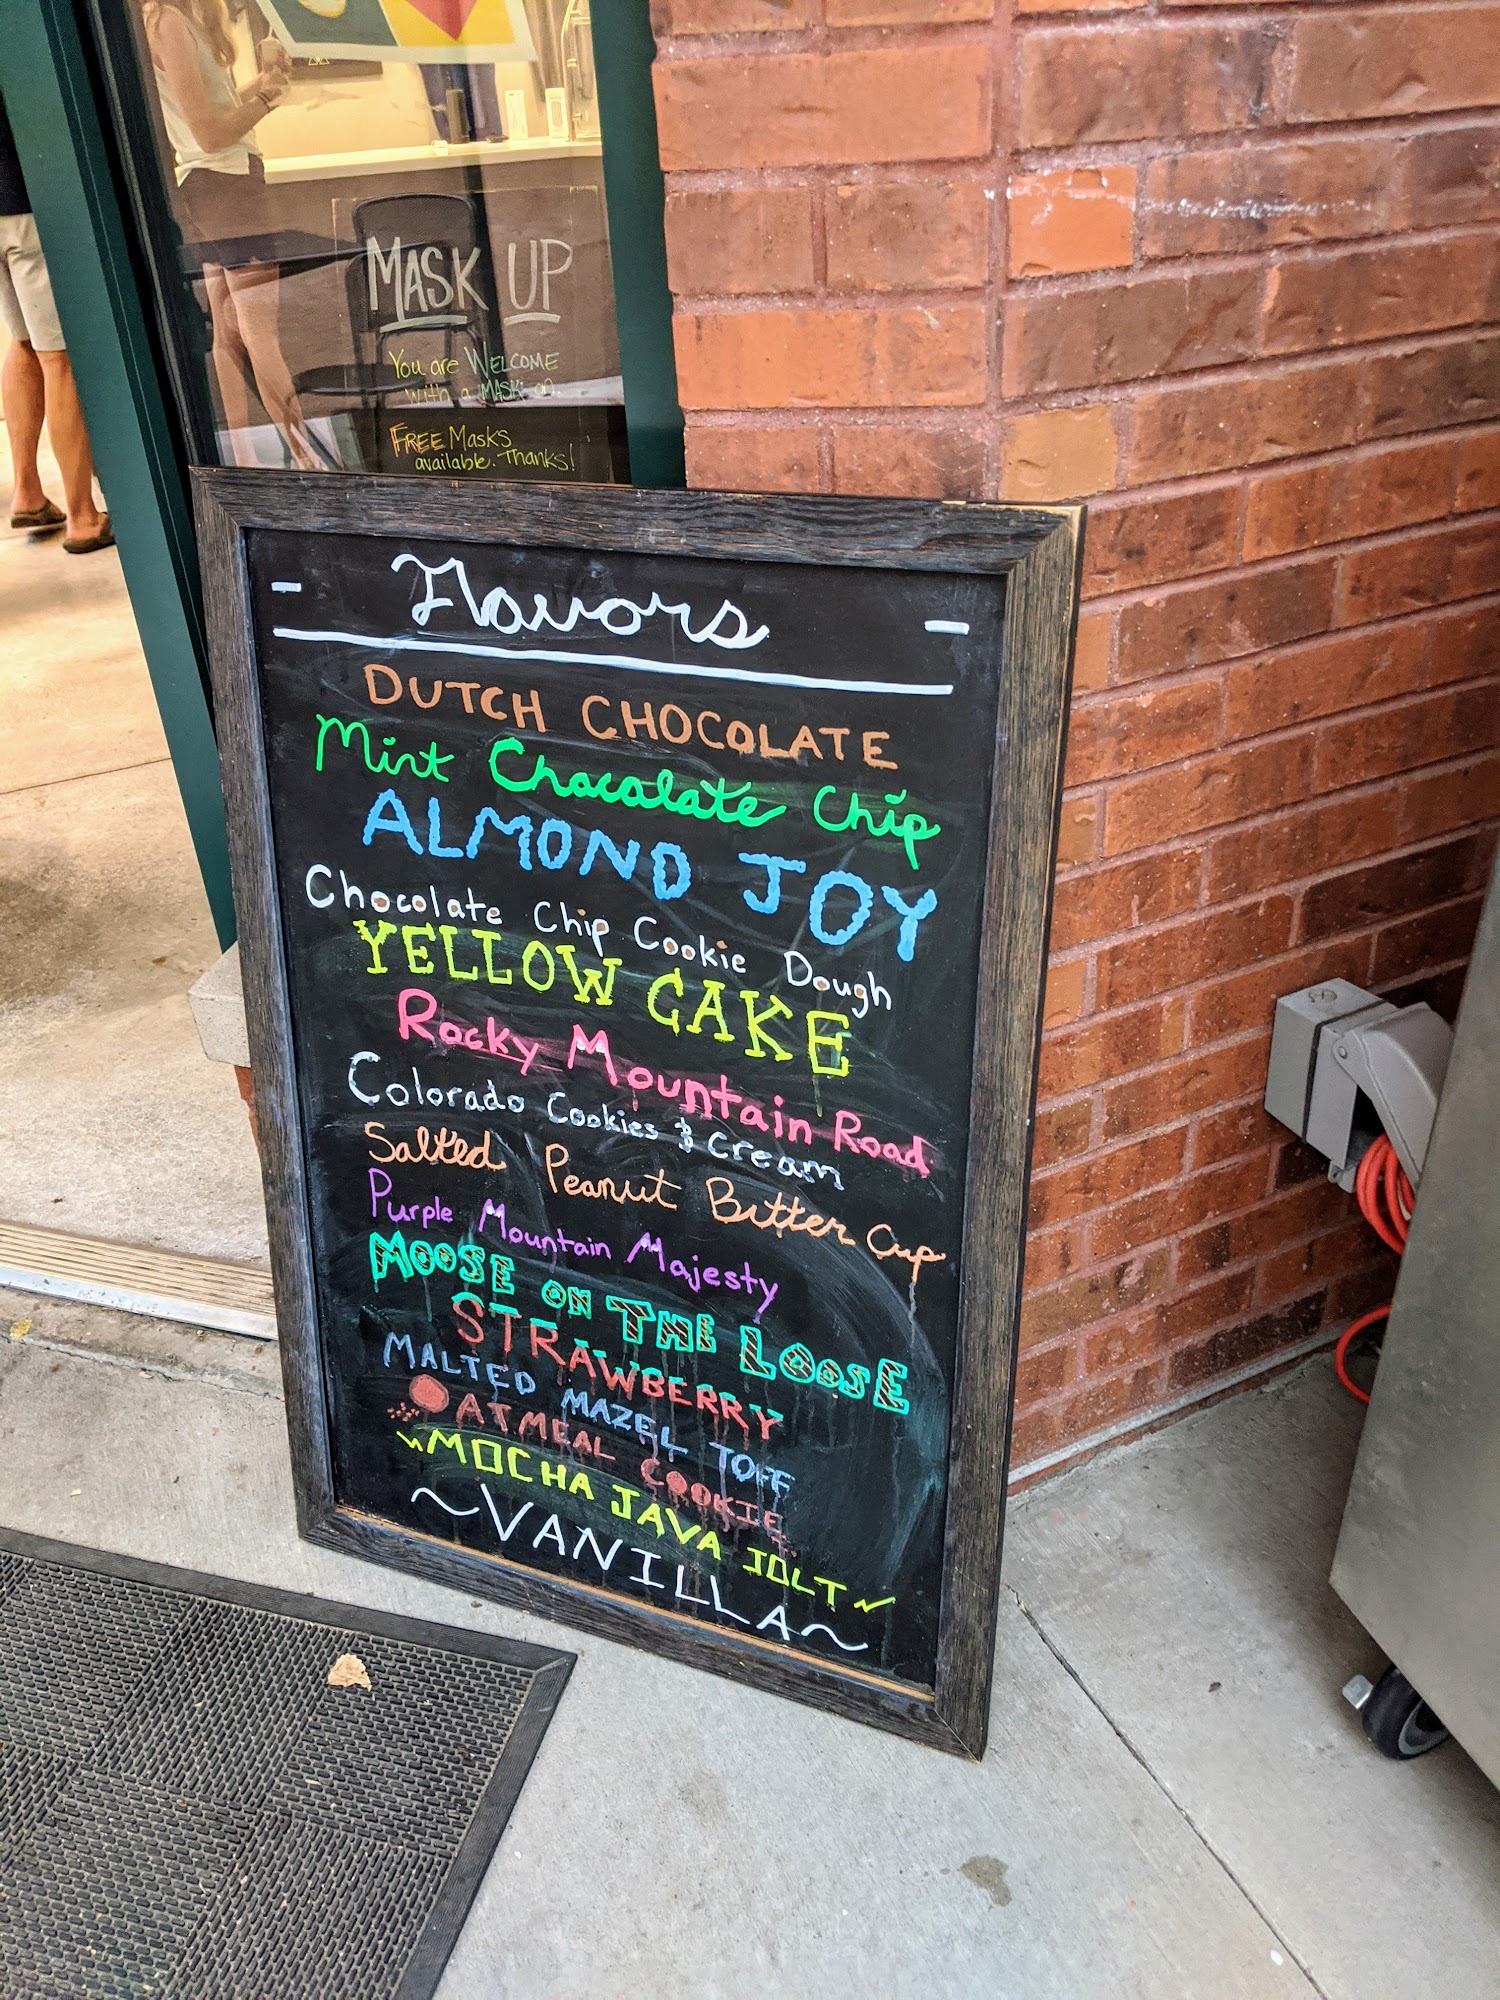 MASK UP
You are WELCOME
with a MASK on.
FREE Masks
available. Thanks!
- Flavors -
DUTCH CHOCOLATE
Mint Chocolate Chip
ALMOND JOY
Chocolate Chip Cookie Dough
YELLOW CAKE
Rocky Mountain Road
Colorado Cookies & Cream
Salted Peanut Butter Cup
Purple Mountain Majesty
MOOSE ON THE LOOSE
STRAWBERRY
MALTED MAZEL TOFF
OATMEAL COOKIE
MOCHA JAVA JOLT
~VANILLA~